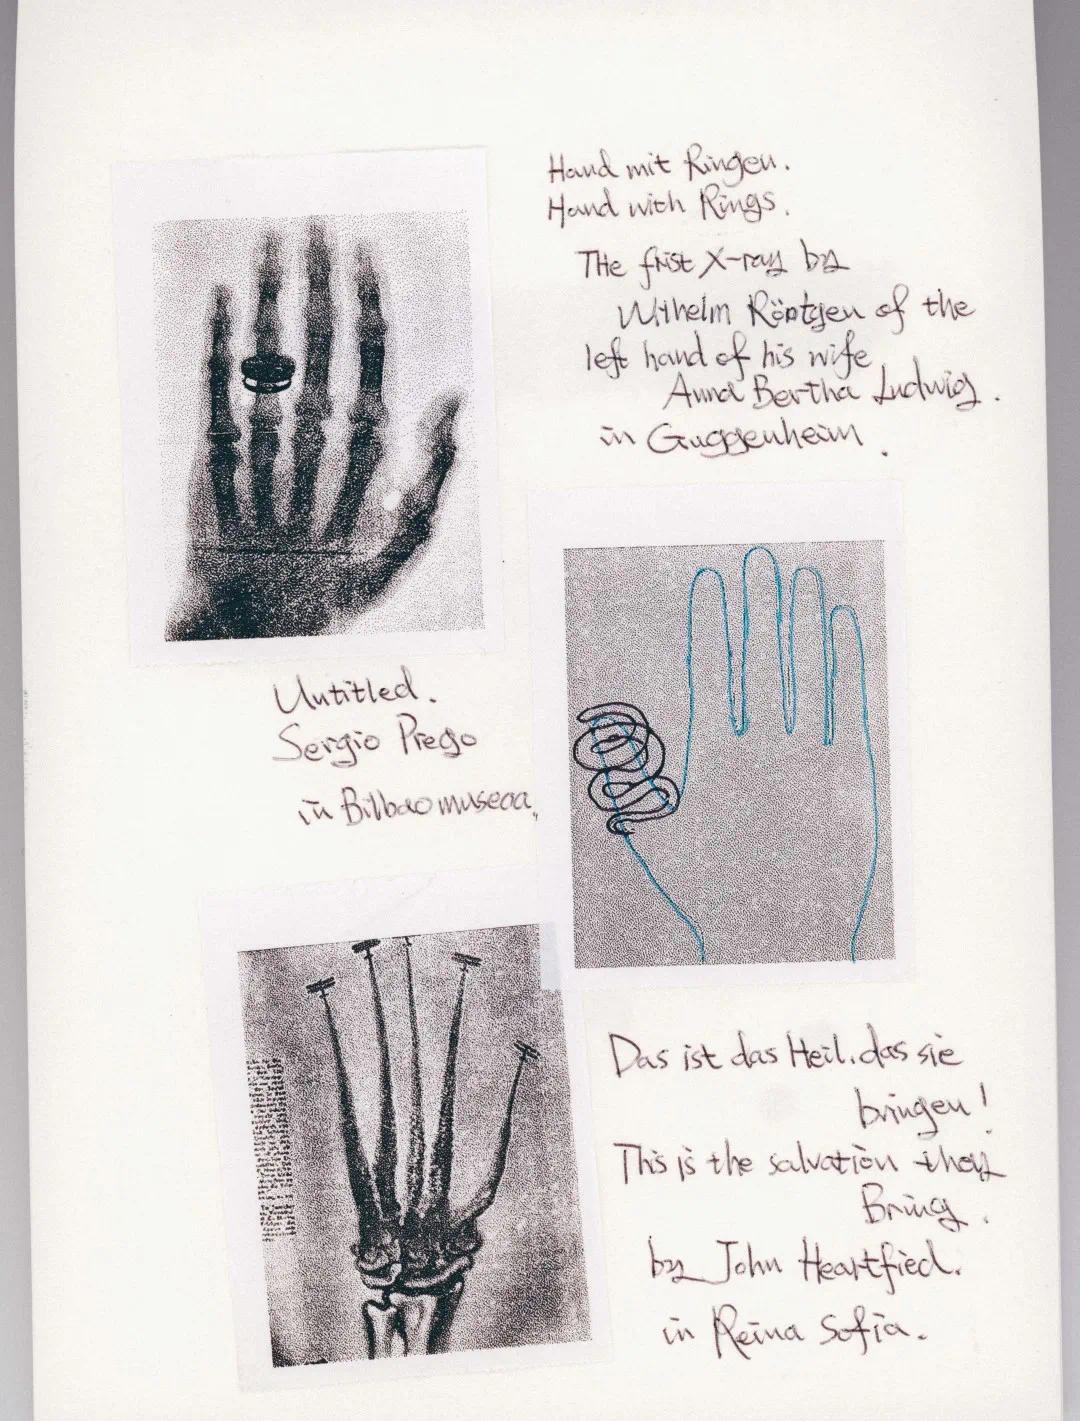 Hand mit Ringen.
Hand with Rings.
THe frist X-ray by
Wilhelm Röntgen of the
left hand of his wife
Anna Bertha Ludwig.
in Guggenheim.
Untitled.
Sergio Prego
in Bilbao museoa.
Das ist das Heil, das sie
bringen!
This is the salvation they
Bring.
by John Heartfied.
in Reina Sofia.